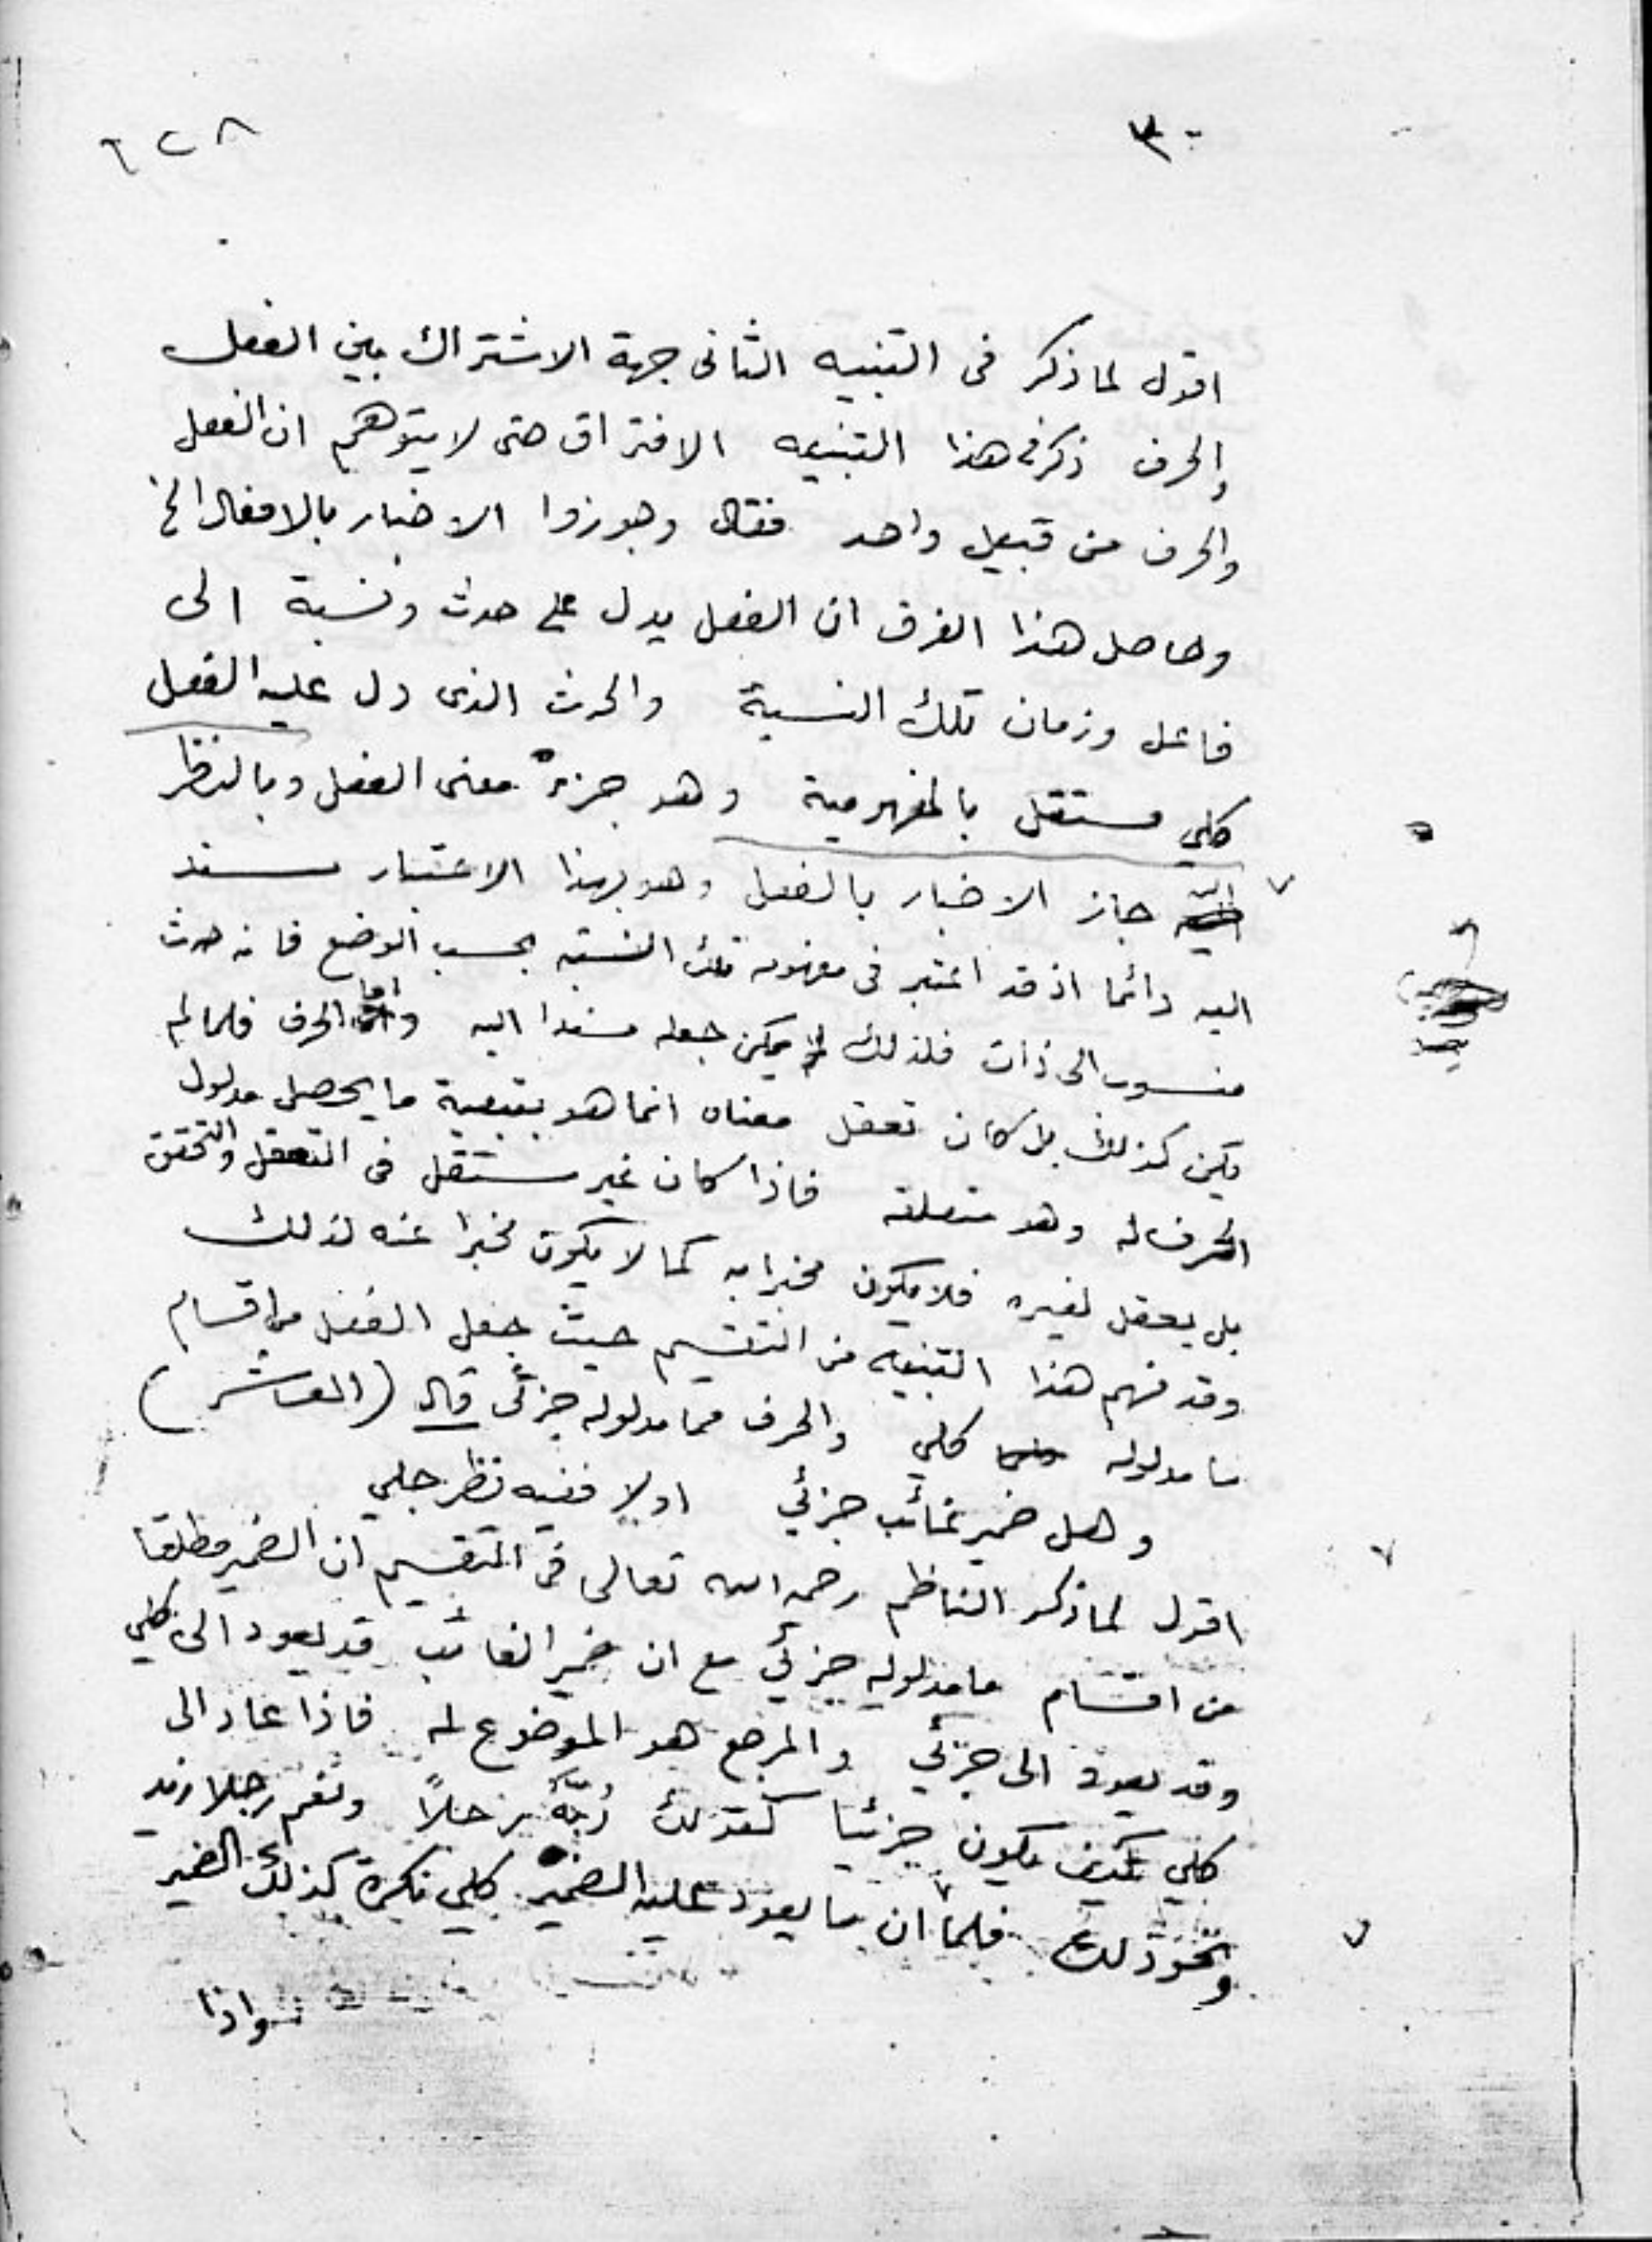 ٦٢٨ ٣٠
اقول لما ذكر فى التنبيه الثانى جهة الاشتراك بين الفعل
والحرف ذكر فى هذا التنبيه الافتراق حتى لا يتوهم ان الفعل
والحرف من قبيل واحد فقال وجوزوا الاخبار بالافعال الخ
وحاصل هذا الفرق ان الفعل يدل على حدث ونسبة الى
فاعل وزمان تلك النسبة والحدث الذى دل عليه الفعل
كلي مستقل بالمفهومية وهو جزء معنى الفعل وبالنظر
اليه جاز الاخبار بالفعل وهو بهذا الاعتبار مسند
اليه دائما اذ قد اعتبر فى مفهومه تلك النسبة بحسب الوضع فانه حدث
منسوب الى ذات فلذلك لم يمكن جعله مسندا اليه واما الحرف فلما لم
يكن كذلك بل كان تعقل معناه انما هو بتبعية ما يحصل مدلول
الحرف له وهو متعلقه فاذا كان غير مستقل فى التعقل والتحقق
بل يعقل لغيره فلا يكون مخبرا به كما لا يكون مخبرا عنه لذلك
وقد فهم هذا التنبيه من التقسيم حيث جعل الفعل من اقسام
ما مدلوله كلي والحرف مما مدلوله جزئى قال (العاشر)
وهل ضمير غائب جزئي اولا ففيه نظر جلي
اقول لما ذكر الناظم رحمه الله تعالى فى التقسيم ان الضمير مطلقا
من اقسام ما مدلوله جزئي مع ان ضمير الغائب قد يعود الى كلي
وقد يعود الى جزئي والمرجع هو الموضوع له فاذا عاد الى
كلي كيف يكون جزئيا كقولك رُبَّهُ رجلاً ونعم رجلا زيد
ونحو ذلك فلما ان ما يعود عليه الضمير كلي نكرة كذلك الضمير
واذا